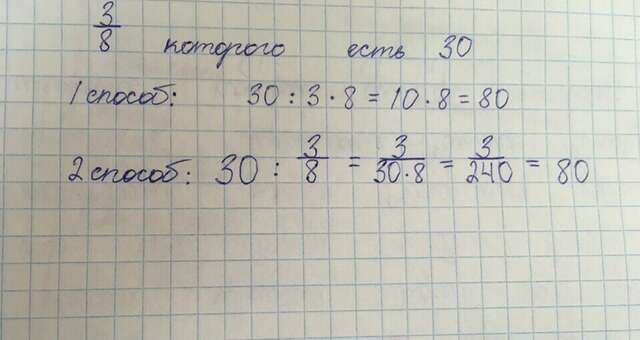 3/8 которого есть 30
1 способ: 30 : 3 · 8 = 10 · 8 = 80
2 способ: 30 : 3/8 = 3/30·8 = 3/240 = 80